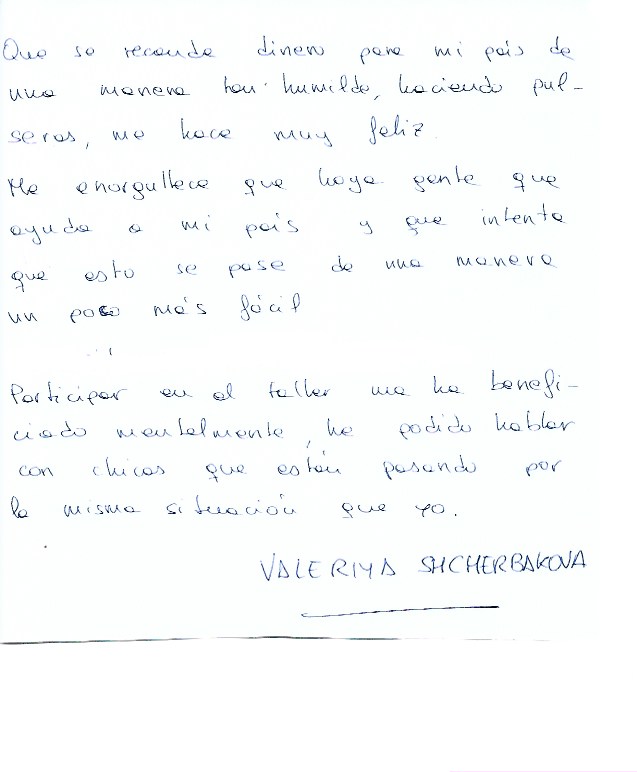 Que se recaude dinero para mi país de
una manera tan humilde, haciendo pul-
seras, me hace muy feliz.
Me enorgullece que haya gente que
ayuda a mi país y que intenta
que esto se pase de una manera
un poco más fácil
Participar en el taller me ha benefi-
ciado mentalmente, he podido hablar
con chicas que están pasando por
la misma situación que yo.
VALERIYA SHCHERBAKOVA